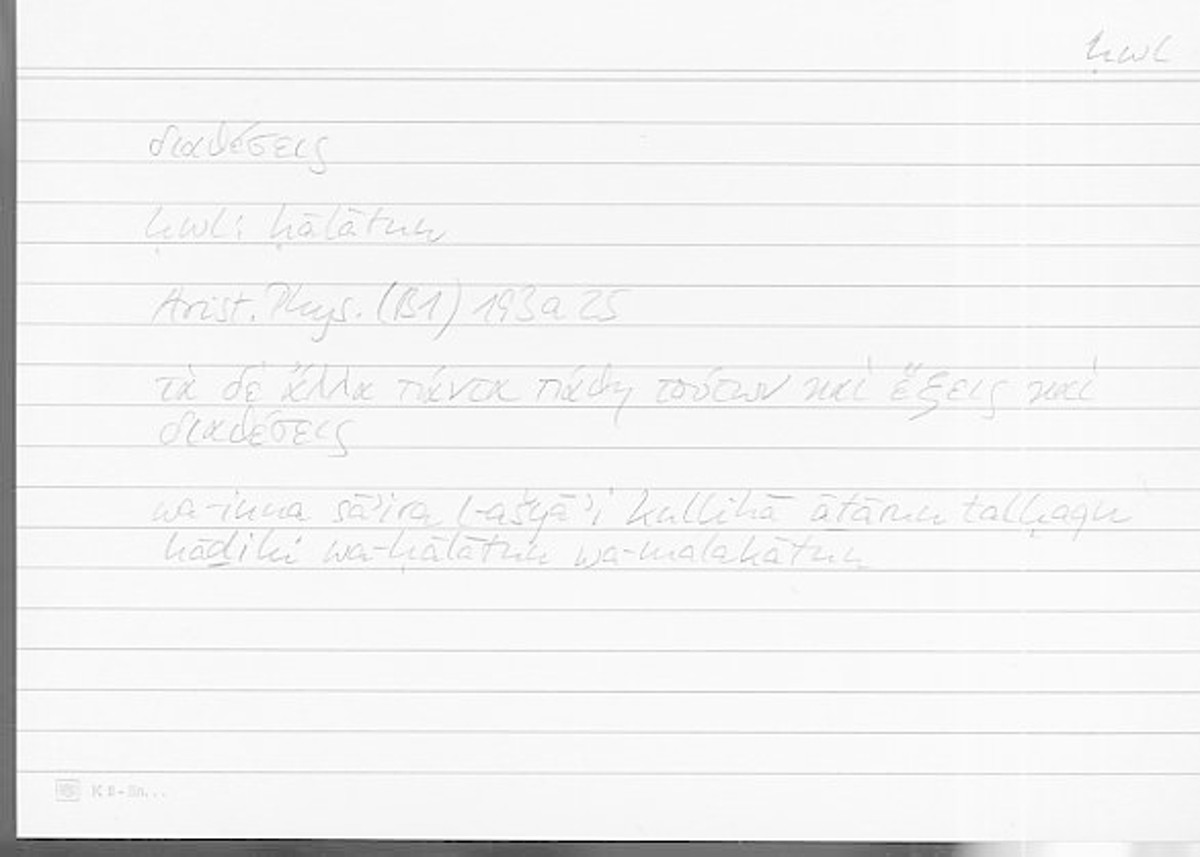 ḥwl
διαθέσεις
ḥwl: ḥālātun
Arist. Phys. (B1) 193a25
τὰ δὲ ἄλλα πάντα πάθη τούτων καὶ ἕξεις καὶ
διαθέσεις
wa-inna sāʾira l-ašyāʾi kullihā āṯārun talḥaqu
hāḏihi wa-ḥālātun wa-malakātun